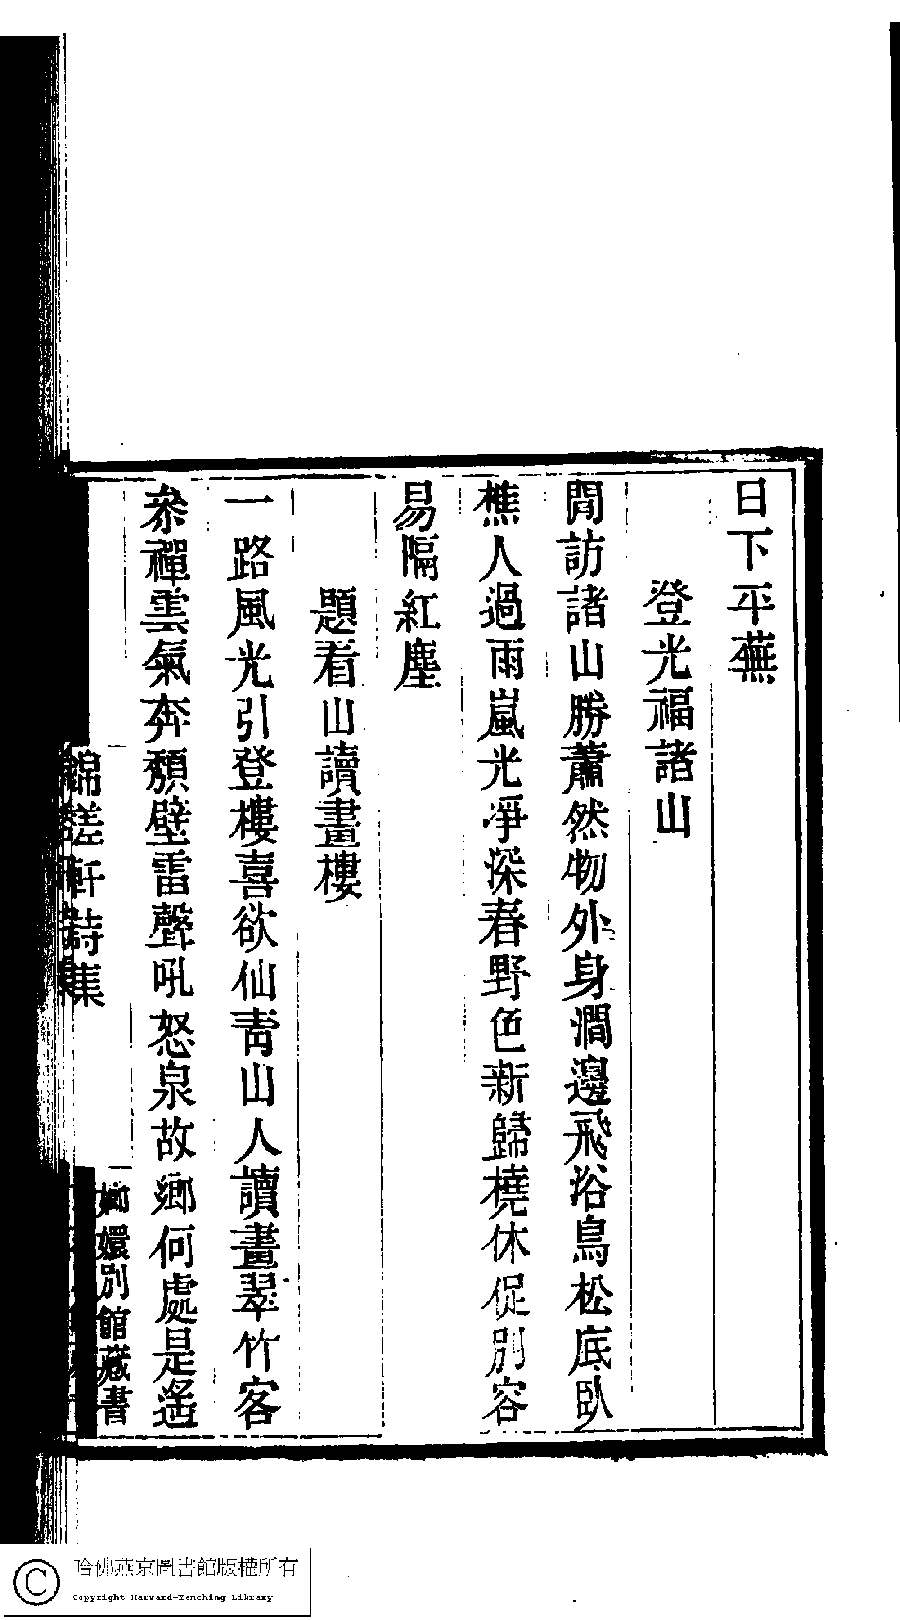 日下平蕪
登光福諸山
閒訪諸山勝蕭然物外身澗邊飛浴鳥松底臥
樵人過雨嵐光淨深春野色新歸橈休促別容
易隔紅塵
題看山讀畫樓
一路風光引登樓喜欲仙靑山人讀畫翠竹客
叅禪雲氣奔頹壁雷聲吼怒泉故鄉何處是遙
錦槎軒詩集
嫏嬛別館藏書
哈佛燕京圖書館版權所有
Copyright Harvard-Yenching Library